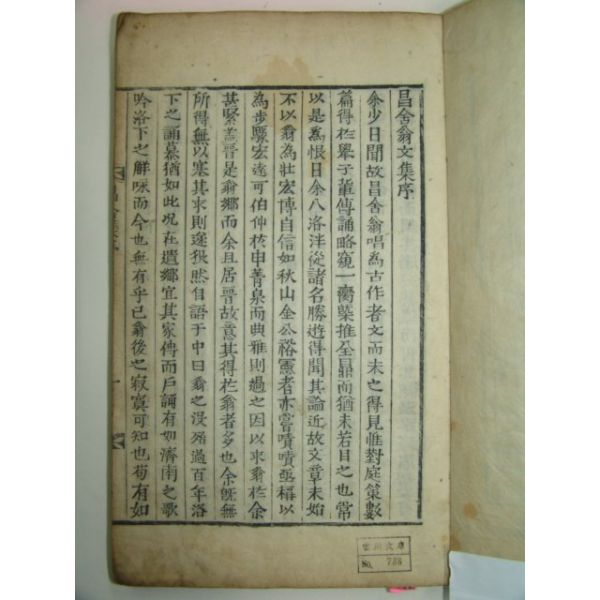 昌舍翁文集序
余少日聞故昌舍翁唱為古作者文而未之得見惟對庭策數
篇得於擧子輩傳誦略窺一臠槩推全鼎而猶未若目之也常
以是為恨日余入洛泮從諸名勝遊得聞其論近故文章未始
不以翁為壯宏博自信如秋山金公裕憲者亦嘗嘖嘖亟稱以
為步驟宏遠可伯仲於申菁泉而典雅則過之因以來翁於余
甚緊盖晉是翁鄉而余且居晉故意其得於翁者多也余旣無
所得無以塞其求則遂狠然自語于中曰翁之沒殆過百年洛
下之誦慕猶如此况在遺鄉宜其家傳而戶誦有如濟南之歌
吟洛下之觧咏而今也無有乎已翁後之寂寞可知也苟有如
昌舍集序
一
No. 738